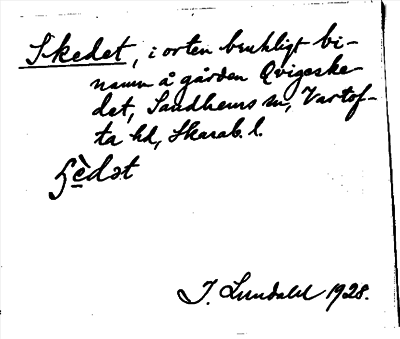 Skedet, i orten brukligt bi-
namn å gården Qvigeske-
det, Sandhems sn, Vartof-
ta hd, Skarab. l.
ʃè̱dət
I. Lundahl 1928.